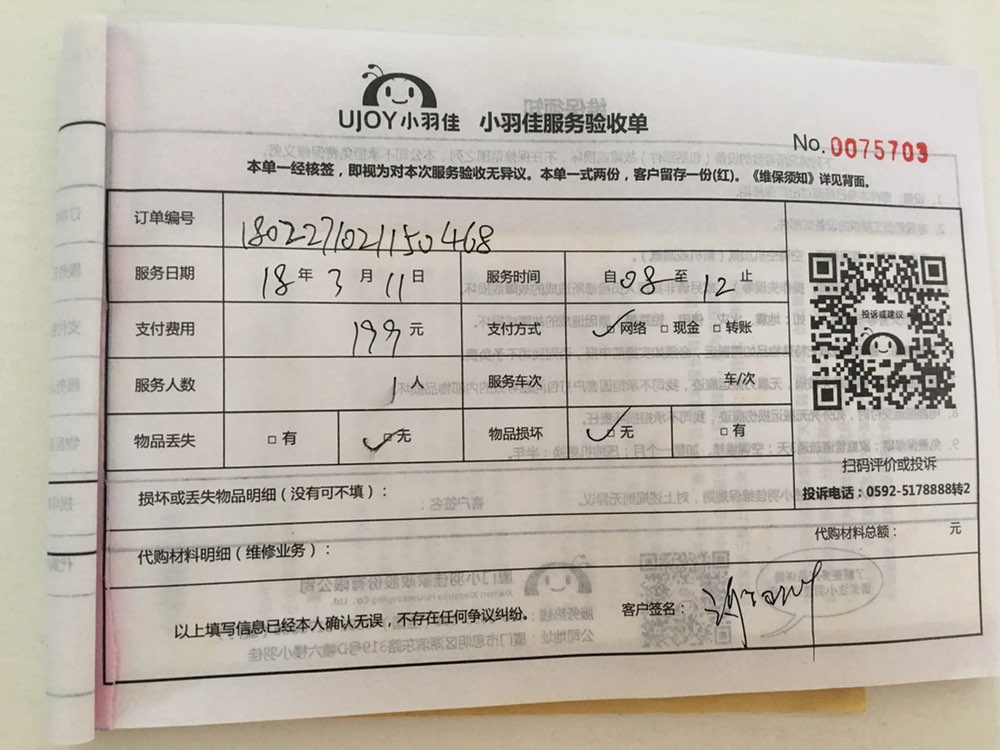 UJOY小羽佳 小羽佳服务验收单
No.0075703
本单一经核签，即视为对本次服务验收无异议。本单一式两份，客户留存一份(红)。《维保须知》详见背面。
订单编号 1802271021150468
服务日期 18 年 3 月 11 日 服务时间 自 08 至 12 止
支付费用 199 元 支付方式 ✓□网络 □现金 □转账
服务人数 1 人 服务车次 车/次
物品丢失 □有 ✓□无 物品损坏 ✓□无 □有
投诉或建议
扫码评价或投诉
投诉电话：0592-5178888转2
损坏或丢失物品明细（没有可不填）：
代购材料明细（维修业务）： 代购材料总额： 元
以上填写信息已经本人确认无误，不存在任何争议纠纷。 客户签名：